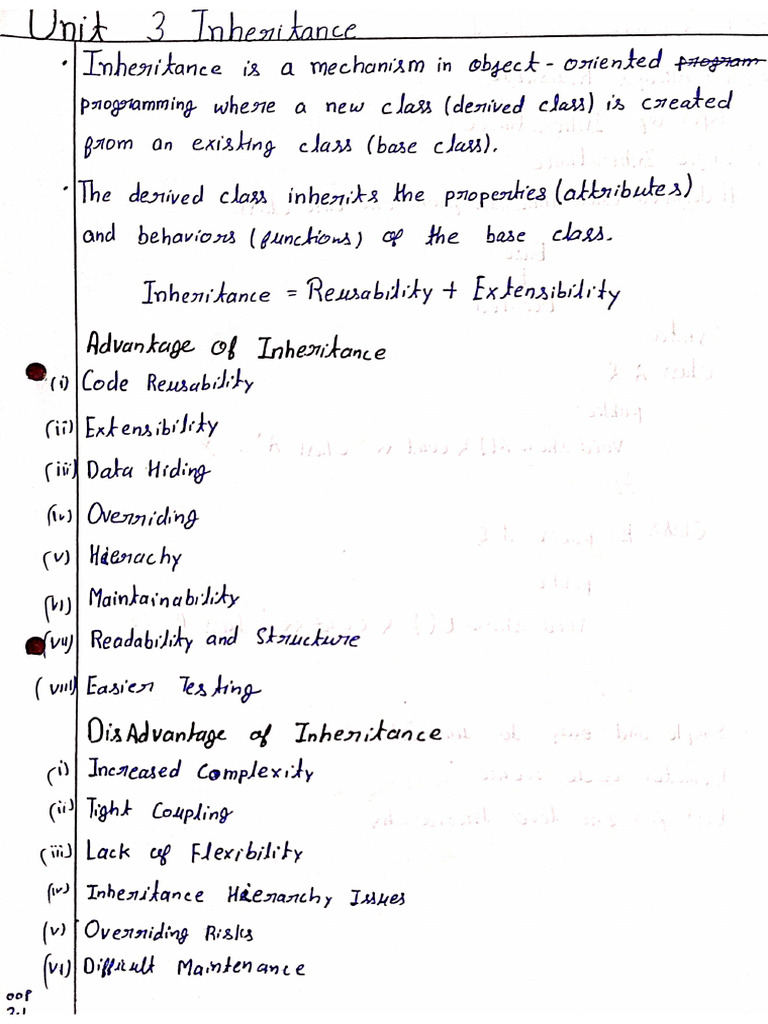 Unit 3 Inheritance
• Inheritance is a mechanism in object-oriented program
programming where a new class (derived class) is created
from an existing class (base class).
• The derived class inherits the properties (attributes)
and behaviors (functions) of the base class.
Inheritance = Reusability + Extensibility
Advantage of Inheritance
(i) Code Reusability
(ii) Extensibility
(iii) Data Hiding
(iv) Overriding
(v) Hierachy
(vi) Maintainability
(vii) Readability and Structure
(viii) Easier Testing
DisAdvantage of Inheritance
(i) Increased Complexity
(ii) Tight Coupling
(iii) Lack of Flexibility
(iv) Inheritance Hierarchy Issues
(v) Overriding Risks
(vi) Difficult Maintenance
OOP